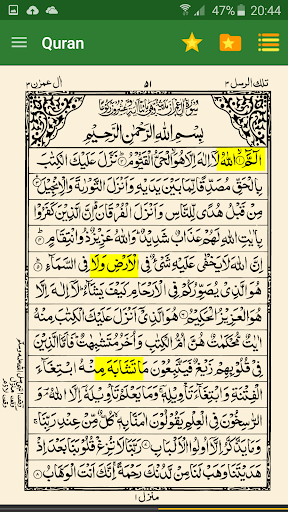 47% 20:44
Quran
تلك الرسل ٣ ٥١ ال عمرن ٣
بِسْمِ اللّٰهِ الرَّحْمٰنِ الرَّحِيْمِ
الٓمّٓ اللّٰهُ لَاۤ اِلٰهَ اِلَّا هُوَ الْحَیُّ الْقَیُّوْمُ نَزَّلَ عَلَیْكَ الْكِتٰبَ
بِالْحَقِّ مُصَدِّقًا لِّمَا بَیْنَ یَدَیْهِ وَاَنْزَلَ التَّوْرٰىةَ وَالْاِنْجِیْلَ
مِنْ قَبْلُ هُدًی لِّلنَّاسِ وَاَنْزَلَ الْفُرْقَانَ اِنَّ الَّذِیْنَ كَفَرُوْا
بِاٰیٰتِ اللّٰهِ لَهُمْ عَذَابٌ شَدِیْدٌ وَاللّٰهُ عَزِیْزٌ ذُو انْتِقَامٍ
اِنَّ اللّٰهَ لَا یَخْفٰی عَلَیْهِ شَیْءٌ فِی الْاَرْضِ وَلَا فِی السَّمَآءِ
هُوَ الَّذِیْ یُصَوِّرُكُمْ فِی الْاَرْحَامِ كَیْفَ یَشَآءُ لَاۤ اِلٰهَ اِلَّا
هُوَ الْعَزِیْزُ الْحَكِیْمُ هُوَ الَّذِیْۤ اَنْزَلَ عَلَیْكَ الْكِتٰبَ مِنْهُ
اٰیٰتٌ مُّحْكَمٰتٌ هُنَّ اُمُّ الْكِتٰبِ وَاُخَرُ مُتَشٰبِهٰتٌ فَاَمَّا الَّذِیْنَ
فِیْ قُلُوْبِهِمْ زَیْغٌ فَیَتَّبِعُوْنَ مَا تَشَابَهَ مِنْهُ ابْتِغَآءَ
الْفِتْنَةِ وَابْتِغَآءَ تَاْوِیْلِهٖ وَمَا یَعْلَمُ تَاْوِیْلَهٗۤ اِلَّا اللّٰهُ وَ
الرّٰسِخُوْنَ فِی الْعِلْمِ یَقُوْلُوْنَ اٰمَنَّا بِهٖ كُلٌّ مِّنْ عِنْدِ رَبِّنَا
وَمَا یَذَّكَّرُ اِلَّاۤ اُولُوا الْاَلْبَابِ رَبَّنَا لَا تُزِغْ قُلُوْبَنَا بَعْدَ اِذْ
هَدَیْتَنَا وَهَبْ لَنَا مِنْ لَّدُنْكَ رَحْمَةً اِنَّكَ اَنْتَ الْوَهَّابُ
منزل ١